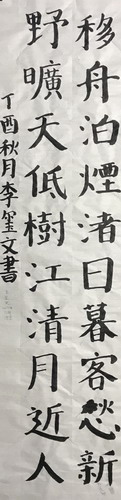 移舟泊煙渚日暮客愁新
野曠天低樹江清月近人
丁酉秋月李璽文書